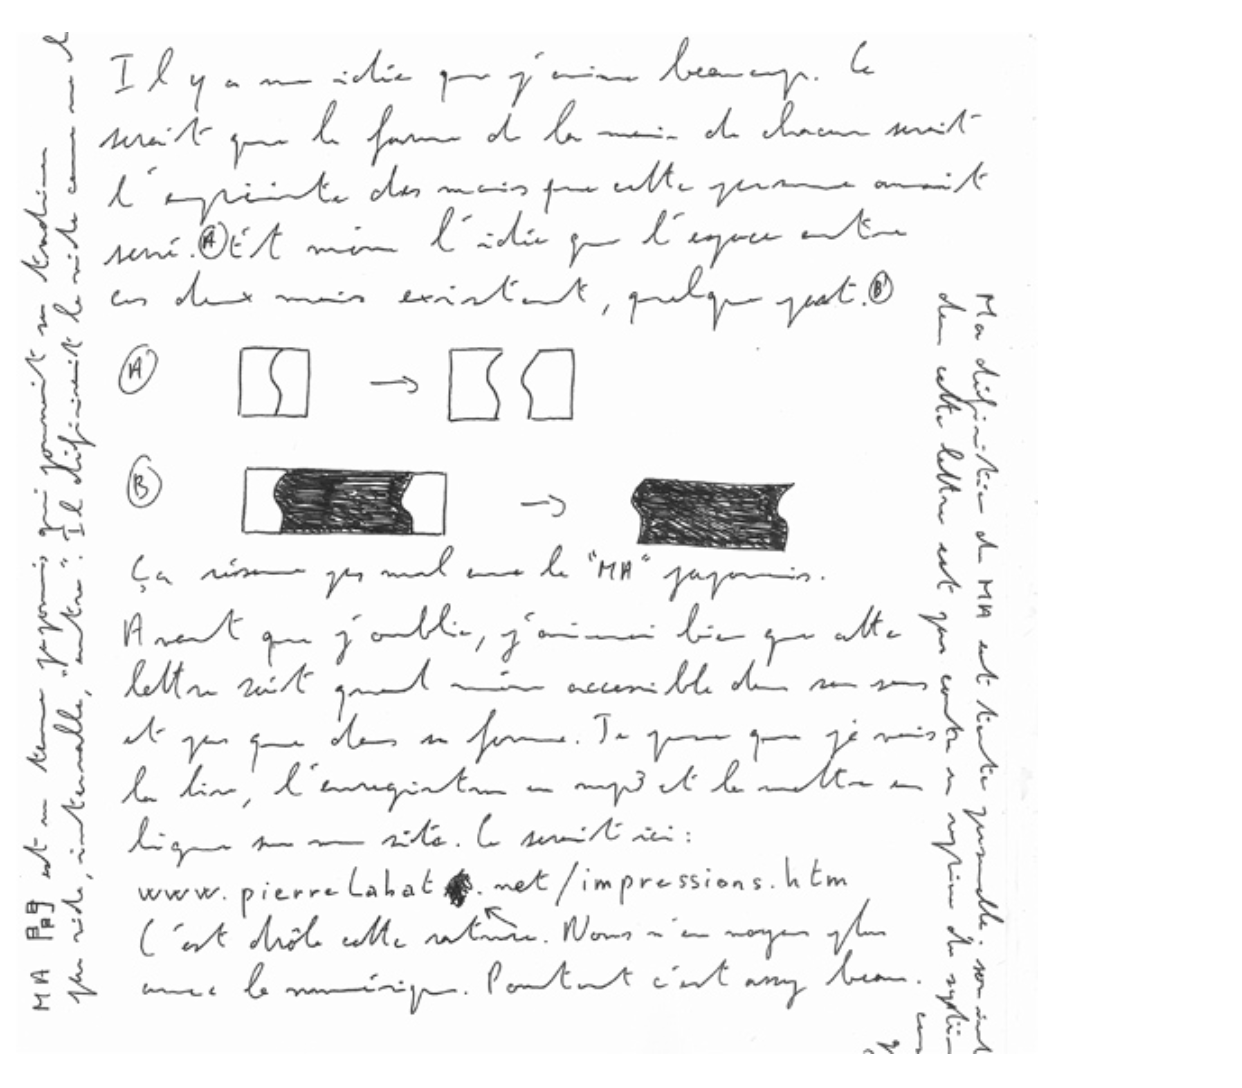 Il y a une idée que j'aime beaucoup. Ce
serait que la forme de la main de chacun serait
l'empreinte des mains que cette personne aurait
serré. (A) Et même l'idée que l'espace entre
ces deux mains existent, quelque part. (B)
(A)
(B)
Ça résonne pas mal avec le "MA" japonais.
Avant que j'oublie, j'aimerai bien que cette
lettre soit quand même accessible dans son sens
et pas que dans sa forme. Je pense que je vais
la lire, l'enregistrer en mp3 et le mettre en
ligne sur mon site. Ce serait ici :
www.pierrelabat.net/impressions.htm
C'est drôle cette rature. Nous n'en voyons plus
avec le numérique. Pourtant c'est assez beau.
MA 間 est un terme japonais qui pourrait se traduire
par vide, intervalle, "entre". Il définirait le vide comme
Ma définition du MA est toute personnelle. son
dans cette lettre est par contre